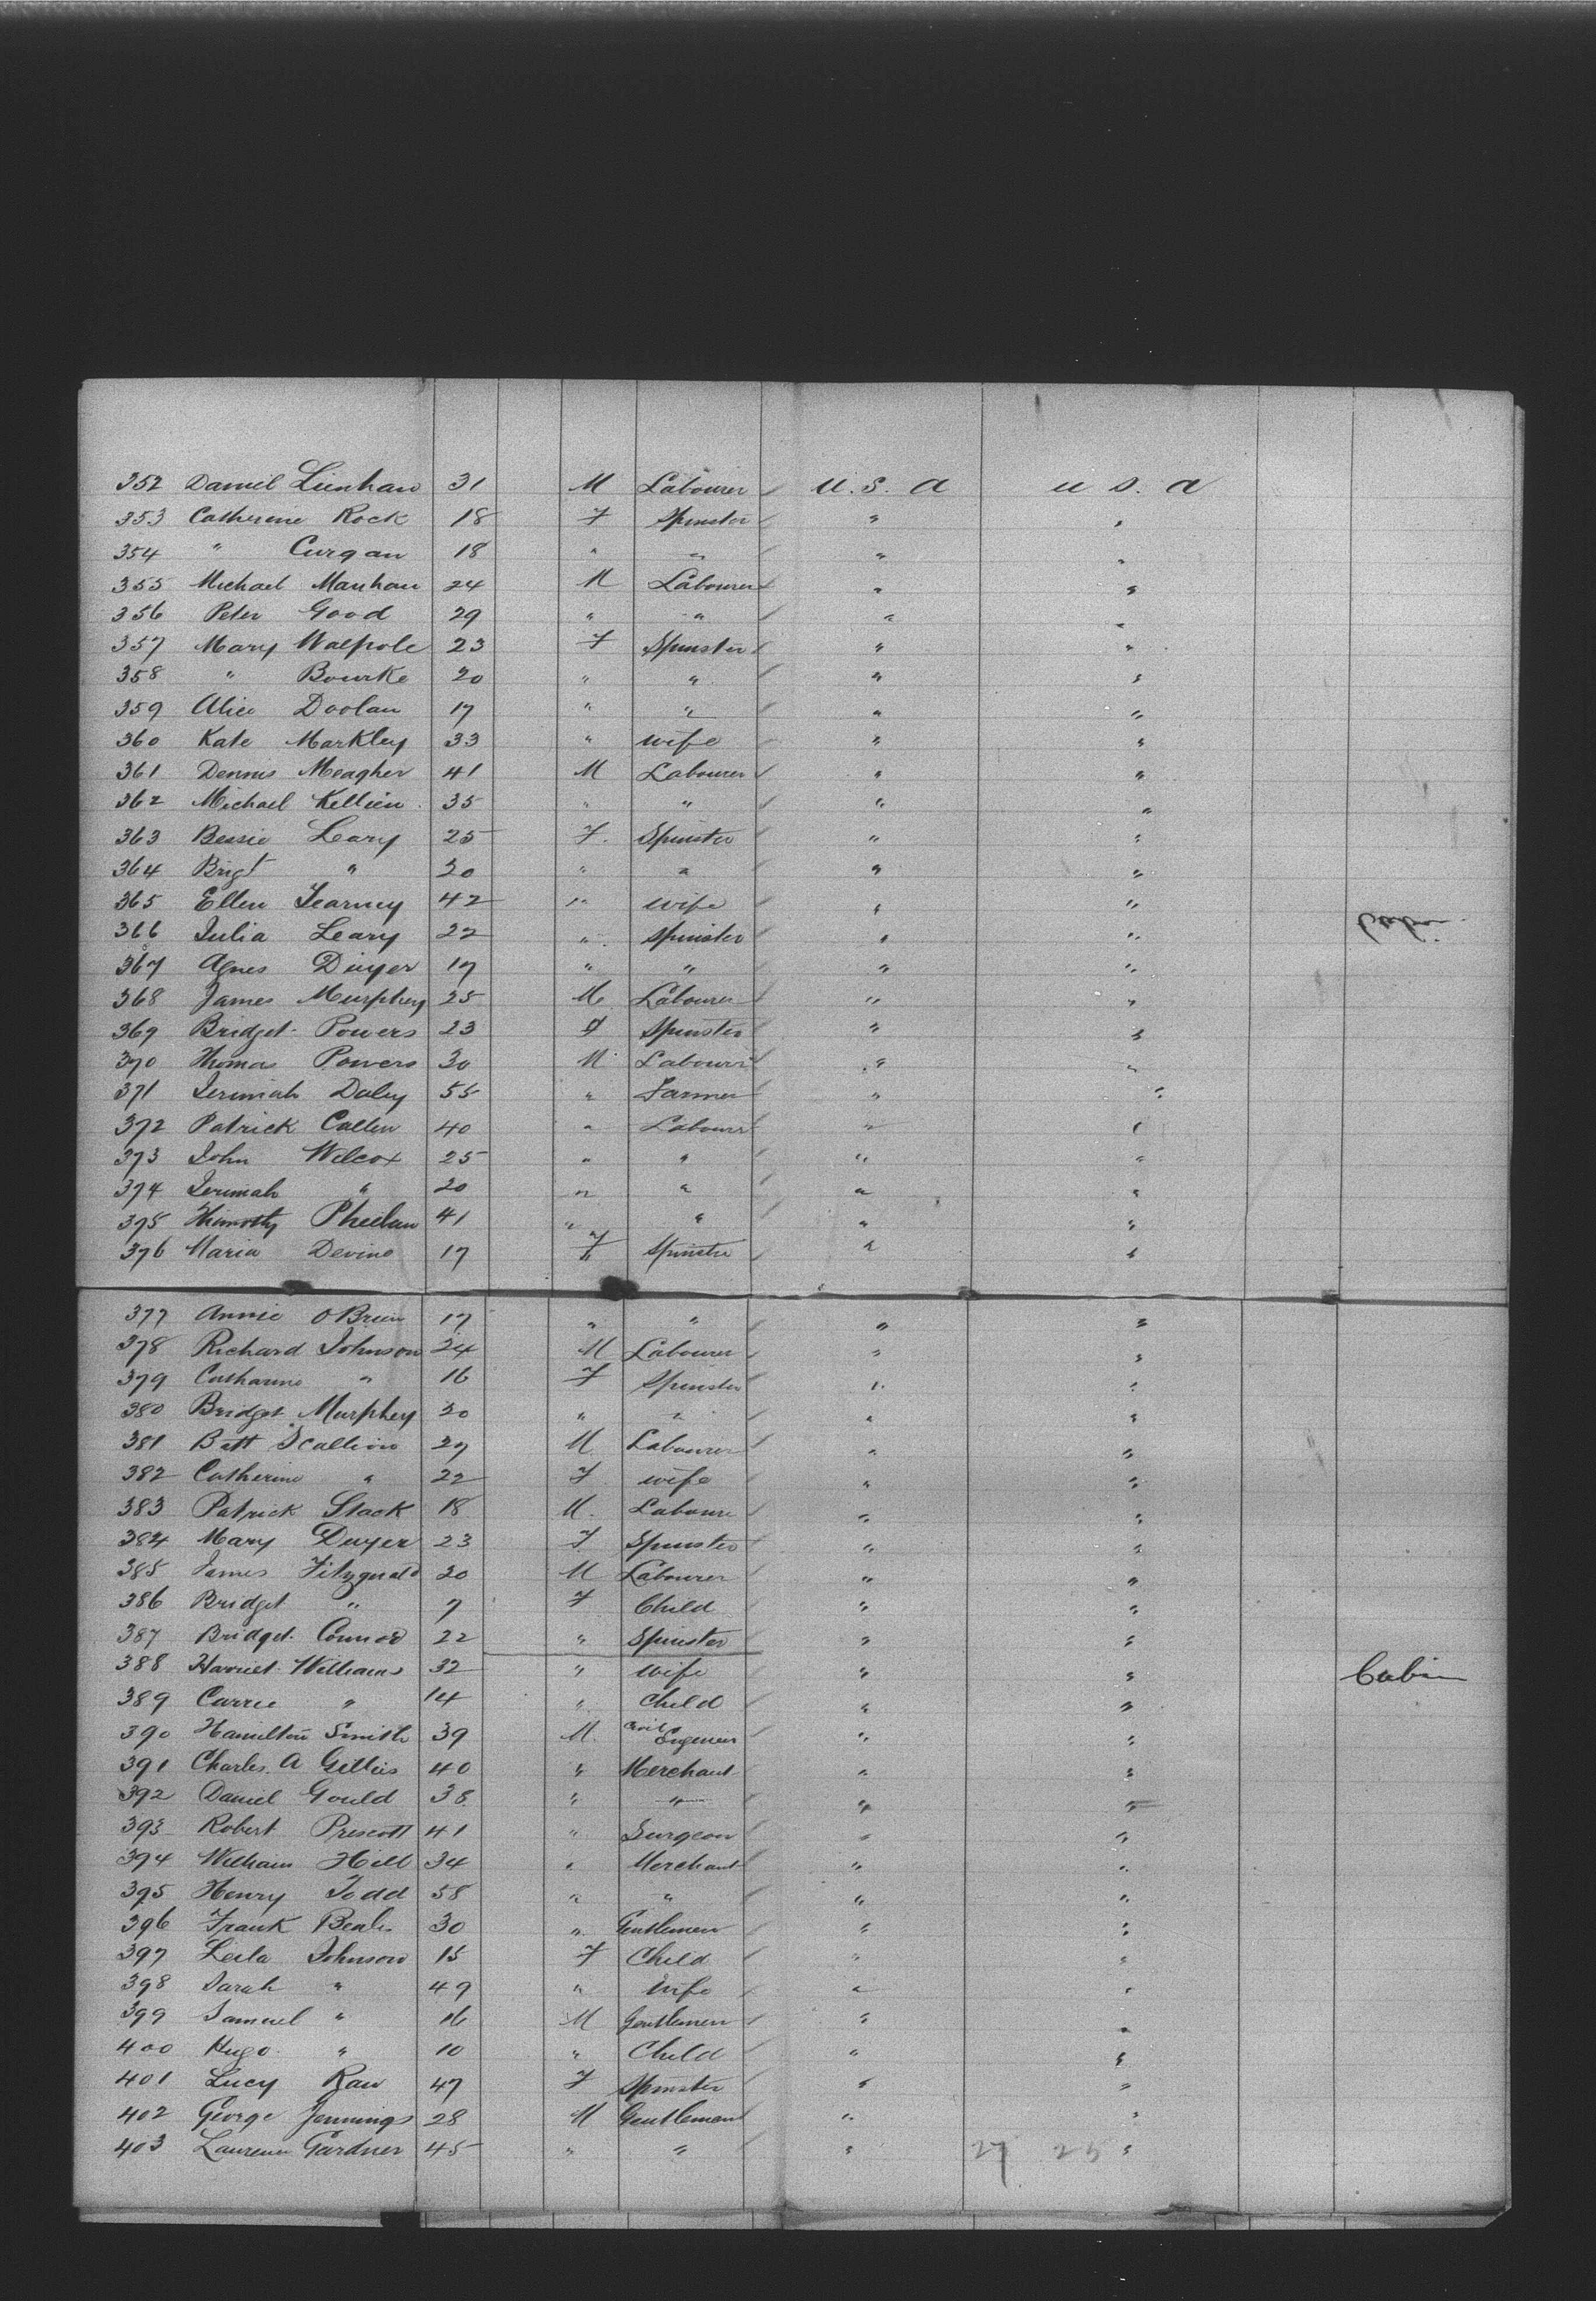 352 Daniel Linehan 31 M Labourer U. S. A U S. A
353 Catherine Rock 18 F Spinster " "
354 " Curgan 18 " " " "
355 Michael Manhan 24 M Labourer " "
356 Peter Good 29 " " " "
357 Mary Walpole 23 F Spinster " "
358 " Bourke 20 " " " "
359 Alice Doolan 17 " " " "
360 Kate Markley 33 " wife " "
361 Dennis Meagher 41 M Labourer " "
362 Michael Kellien 35 " " " "
363 Bessie Leary 25 F. Spinster " "
364 Brigt " 20 " " " "
365 Ellen Fearney 42 " wife " "
366 Julia Leary 22 " Spinster " "
367 Agnes Dwyer 17 " " " "
368 James Murphey 25 M Labourer " "
369 Bridget Powers 23 F Spinster " "
370 Thomas Powers 30 M Labourer " "
371 Jerimiah Daley 55 " Farmer " "
372 Patrick Cullen 40 " Labourer " "
373 John Wilcox 25 " " " "
374 Jerimiah " 20 " " " "
375 Thimothy Pheelan 41 " " " "
376 Maria Devine 17 F Spinster " "
377 Annie OBrien 17 " " " "
378 Richard Johnson 24 M Labourer " "
379 Catharine " 16 F Spinster " "
380 Bridget Murphey 20 " " " "
381 Batt Scallion 27 M Labourer " "
382 Catherine " 22 F wife " "
383 Patrick Stack 18 M. Labourer " "
384 Mary Dwyer 23 F Spinster " "
385 James Fitzgerald 20 M Labourer " "
386 Bridget " 7 F Child " "
387 Bridget Connor 22 " Spinster " "
388 Harriet Williams 32 " wife " " Cabin
389 Carrie " 14 " Child " "
390 Hamilton Smith 39 M. Civil Engineer " "
391 Charles. A Gillies 40 " Merchant " "
392 Daniel Gould 38 " " " "
393 Robert Prescott 41 " Surgeon " "
394 William Hill 34 " Merchant " "
395 Henry Todd 58 " " " "
396 Frank Beals 30 " Gentlemen " "
397 Leila Johnson 15 F Child " "
398 Sarah " 49 " Wife " "
399 Samuel " 16 M Gentlemen " "
400 Hugo " 10 " Child " "
401 Lucy Raw 47 F Spinster " "
402 George Jennings 28 M Gentleman " "
403 Laurence Gardner 45 " " " 27 25 "